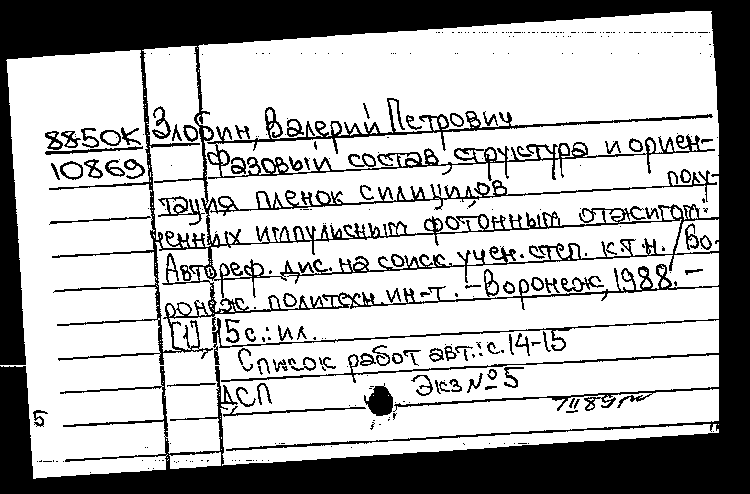 88-50К Злобин, Валерий Петрович
10869 Фазовый состав, структура и ориен-
тация пленок силицидов полу-
ченных импульсным фотонным отжигом:
Автореф. дис. на соиск. учен. степ. к.т.н. / Во-
ронеж. политехн. ин-т. - Воронеж, 1988. -
[1], 15 с.: ил.
Список работ авт.: с. 14-15
ДСП Экз № 5
5